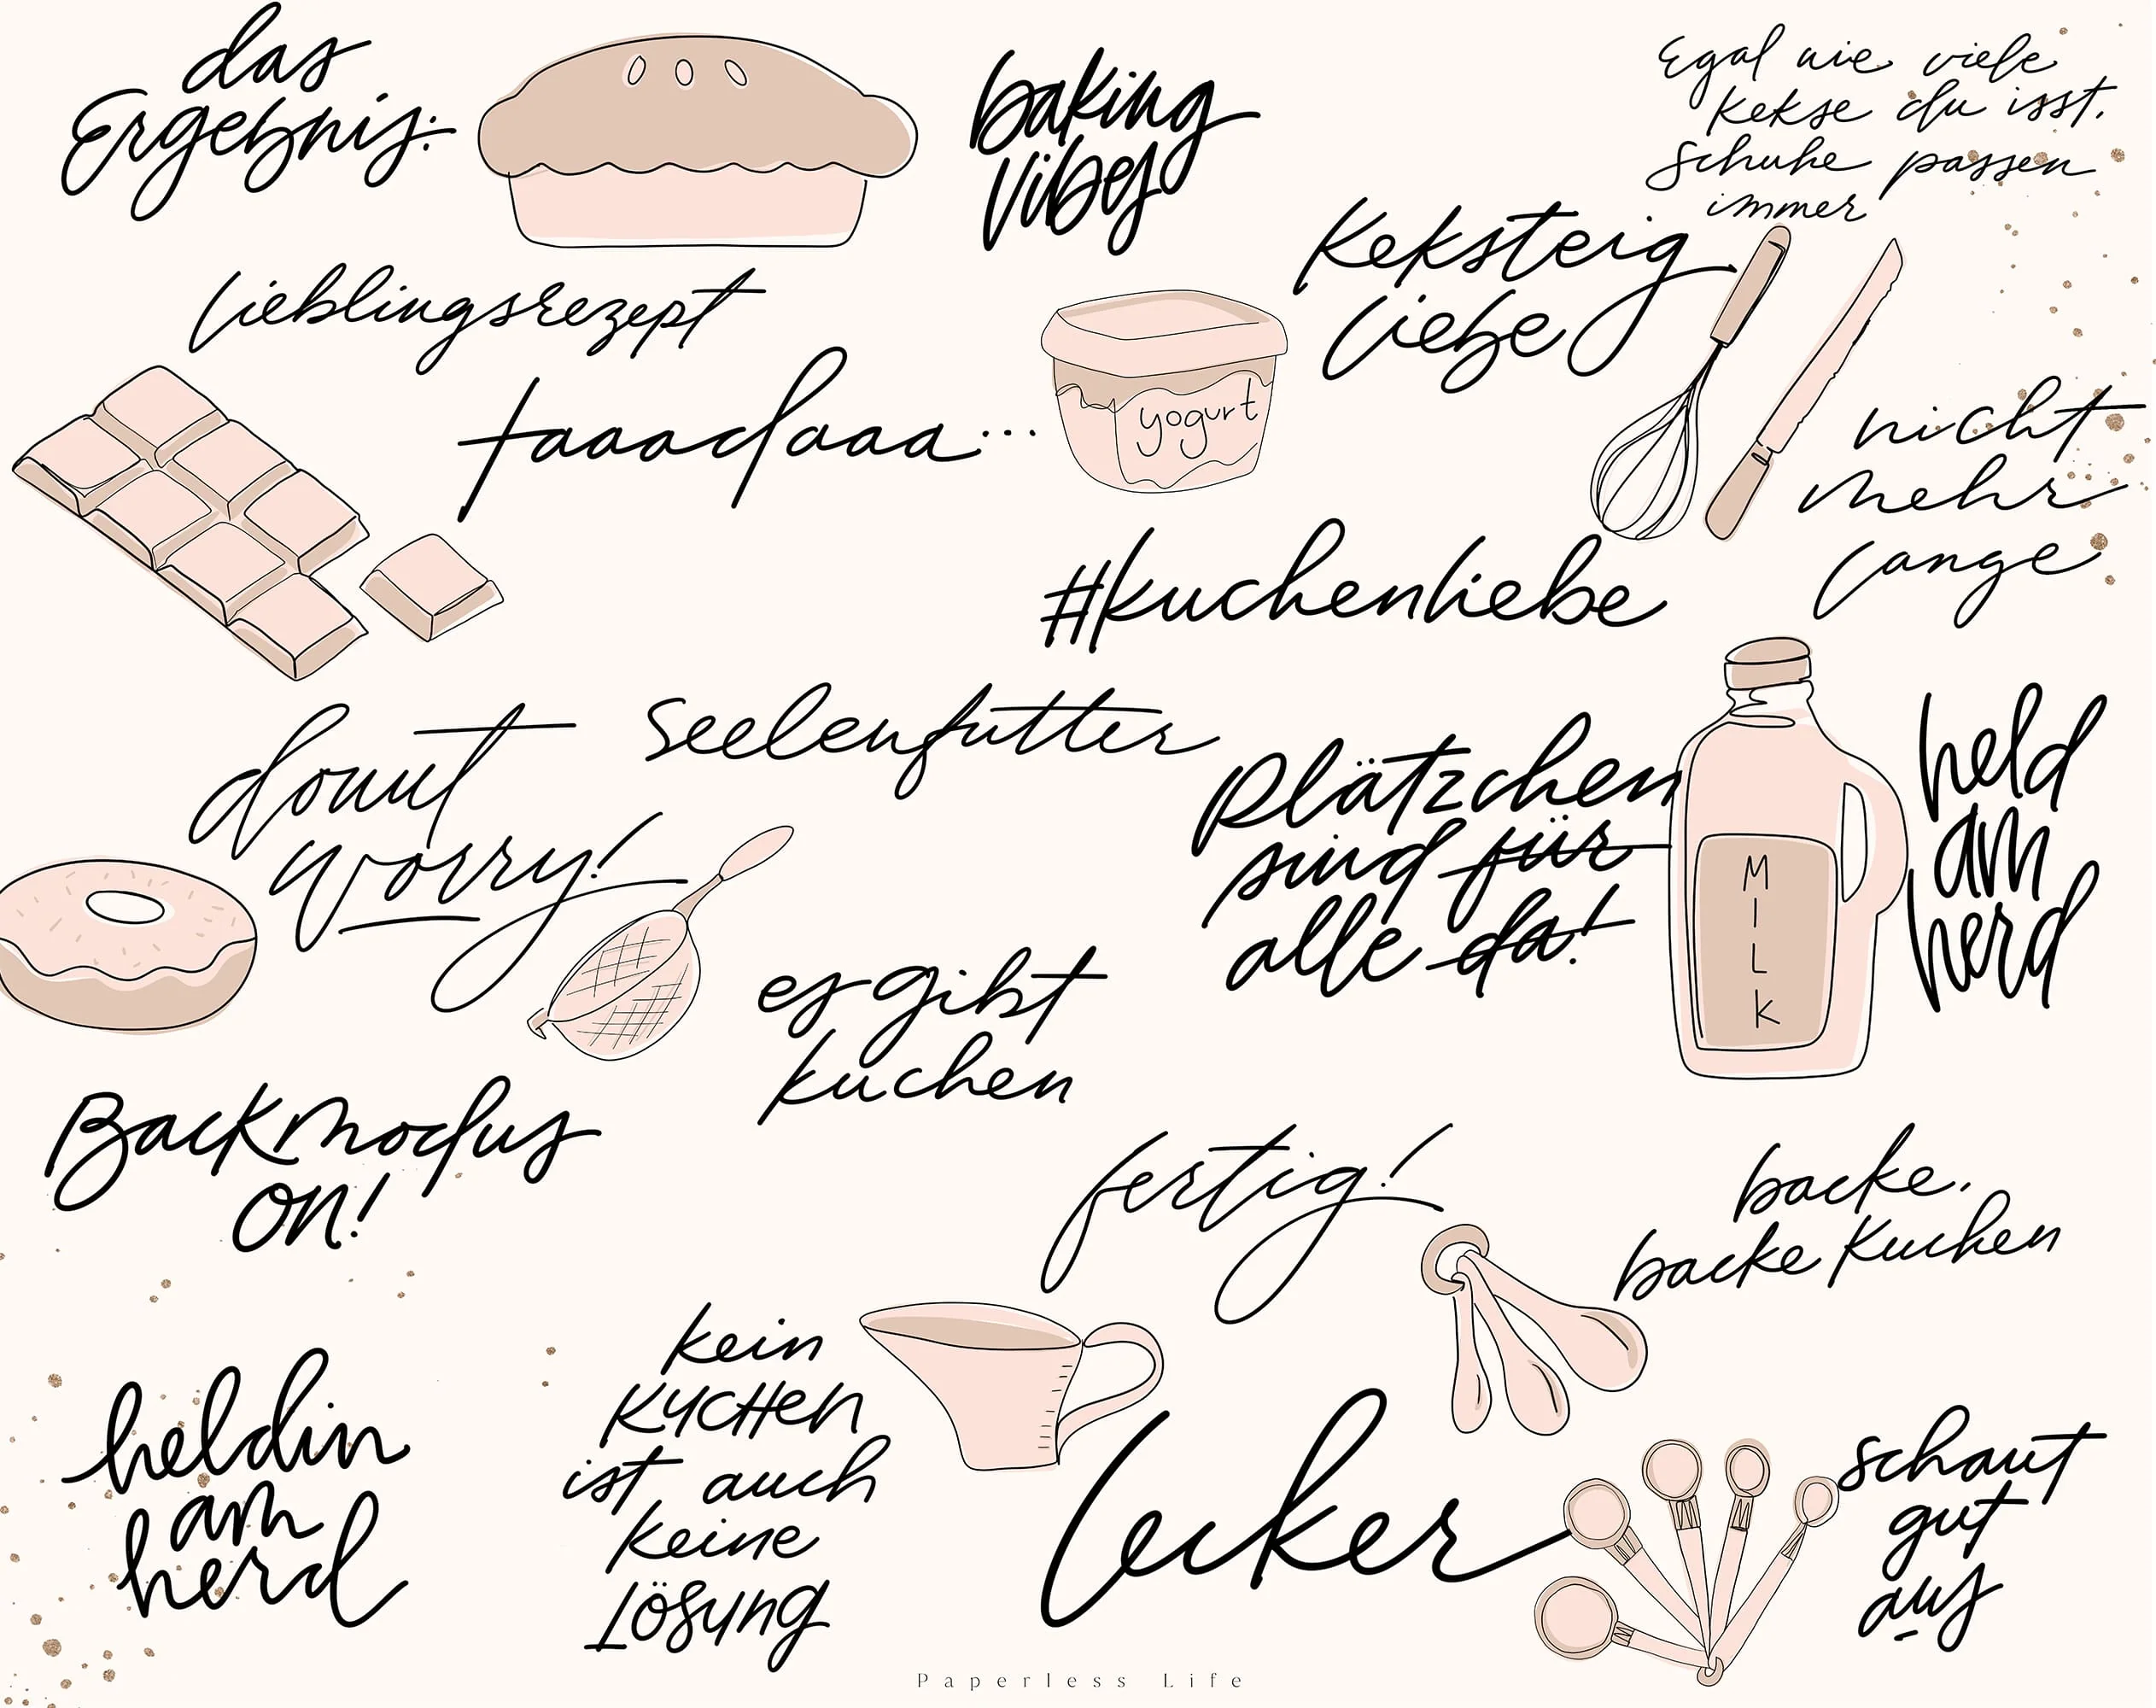 das
Ergebnis:
baking
vibes
Egal wie viele
Kekse du isst,
Schuhe passen
immer
Keksteig
liebe
lieblingsrezept
taaadaaa...
yogurt
nicht
mehr
lange
#kuchenliebe
donut
worry!
Seelenfutter
Plätzchen
sind für
alle da!
MILK
held
am
herd
es gibt
kuchen
Backmodus
on!
fertig!
backe,
backe Kuchen
heldin
am
herd
kein
KUCHen
ist auch
keine
Lösung
lecker
schaut
gut
aus
Paperless Life